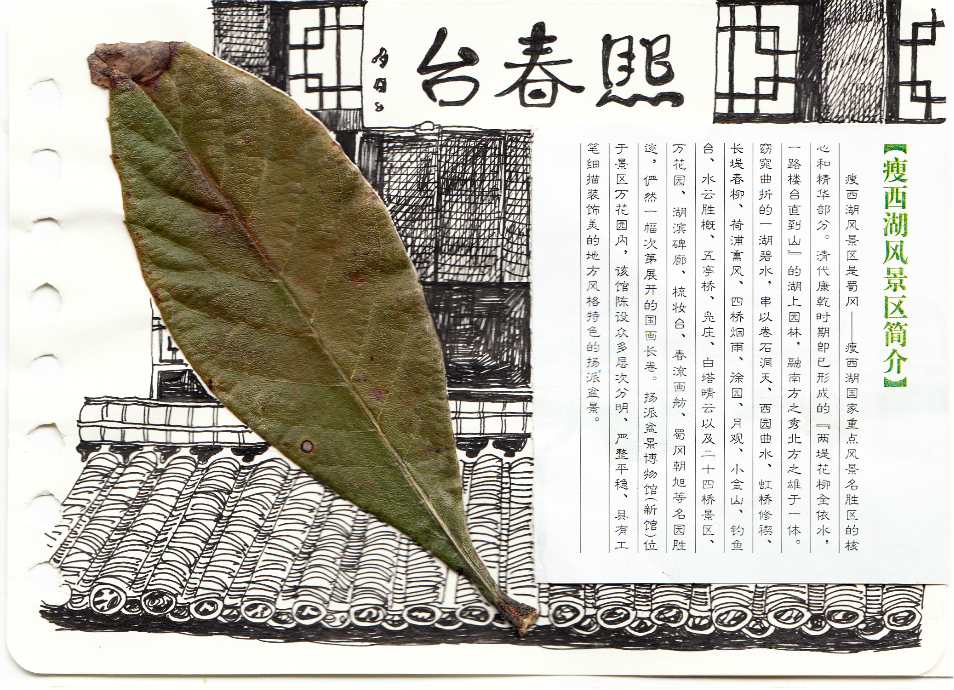 熙春台
【瘦西湖风景区简介】
瘦西湖风景区是蜀冈——瘦西湖国家重点风景名胜区的核
心和精华部分。清代康乾时期即已形成的『两堤花柳全依水，
一路楼台直到山』的湖上园林，融南方之秀北方之雄于一体。
窈窕曲折的一湖碧水，串以卷石洞天、西园曲水、虹桥修禊、
长堤春柳、荷浦熏风、四桥烟雨、徐园、月观、小金山、钓鱼
台、水云胜概、五亭桥、凫庄、白塔晴云以及二十四桥景区、
万花园、湖滨碑廊、梳妆台、春流画舫、蜀冈朝旭等名园胜
迹，俨然一幅次第展开的国画长卷。扬派盆景博物馆(新馆)位
于景区万花园内，该馆陈设众多层次分明、严整平稳、具有工
笔细描装饰美的地方风格特色的扬派盆景。